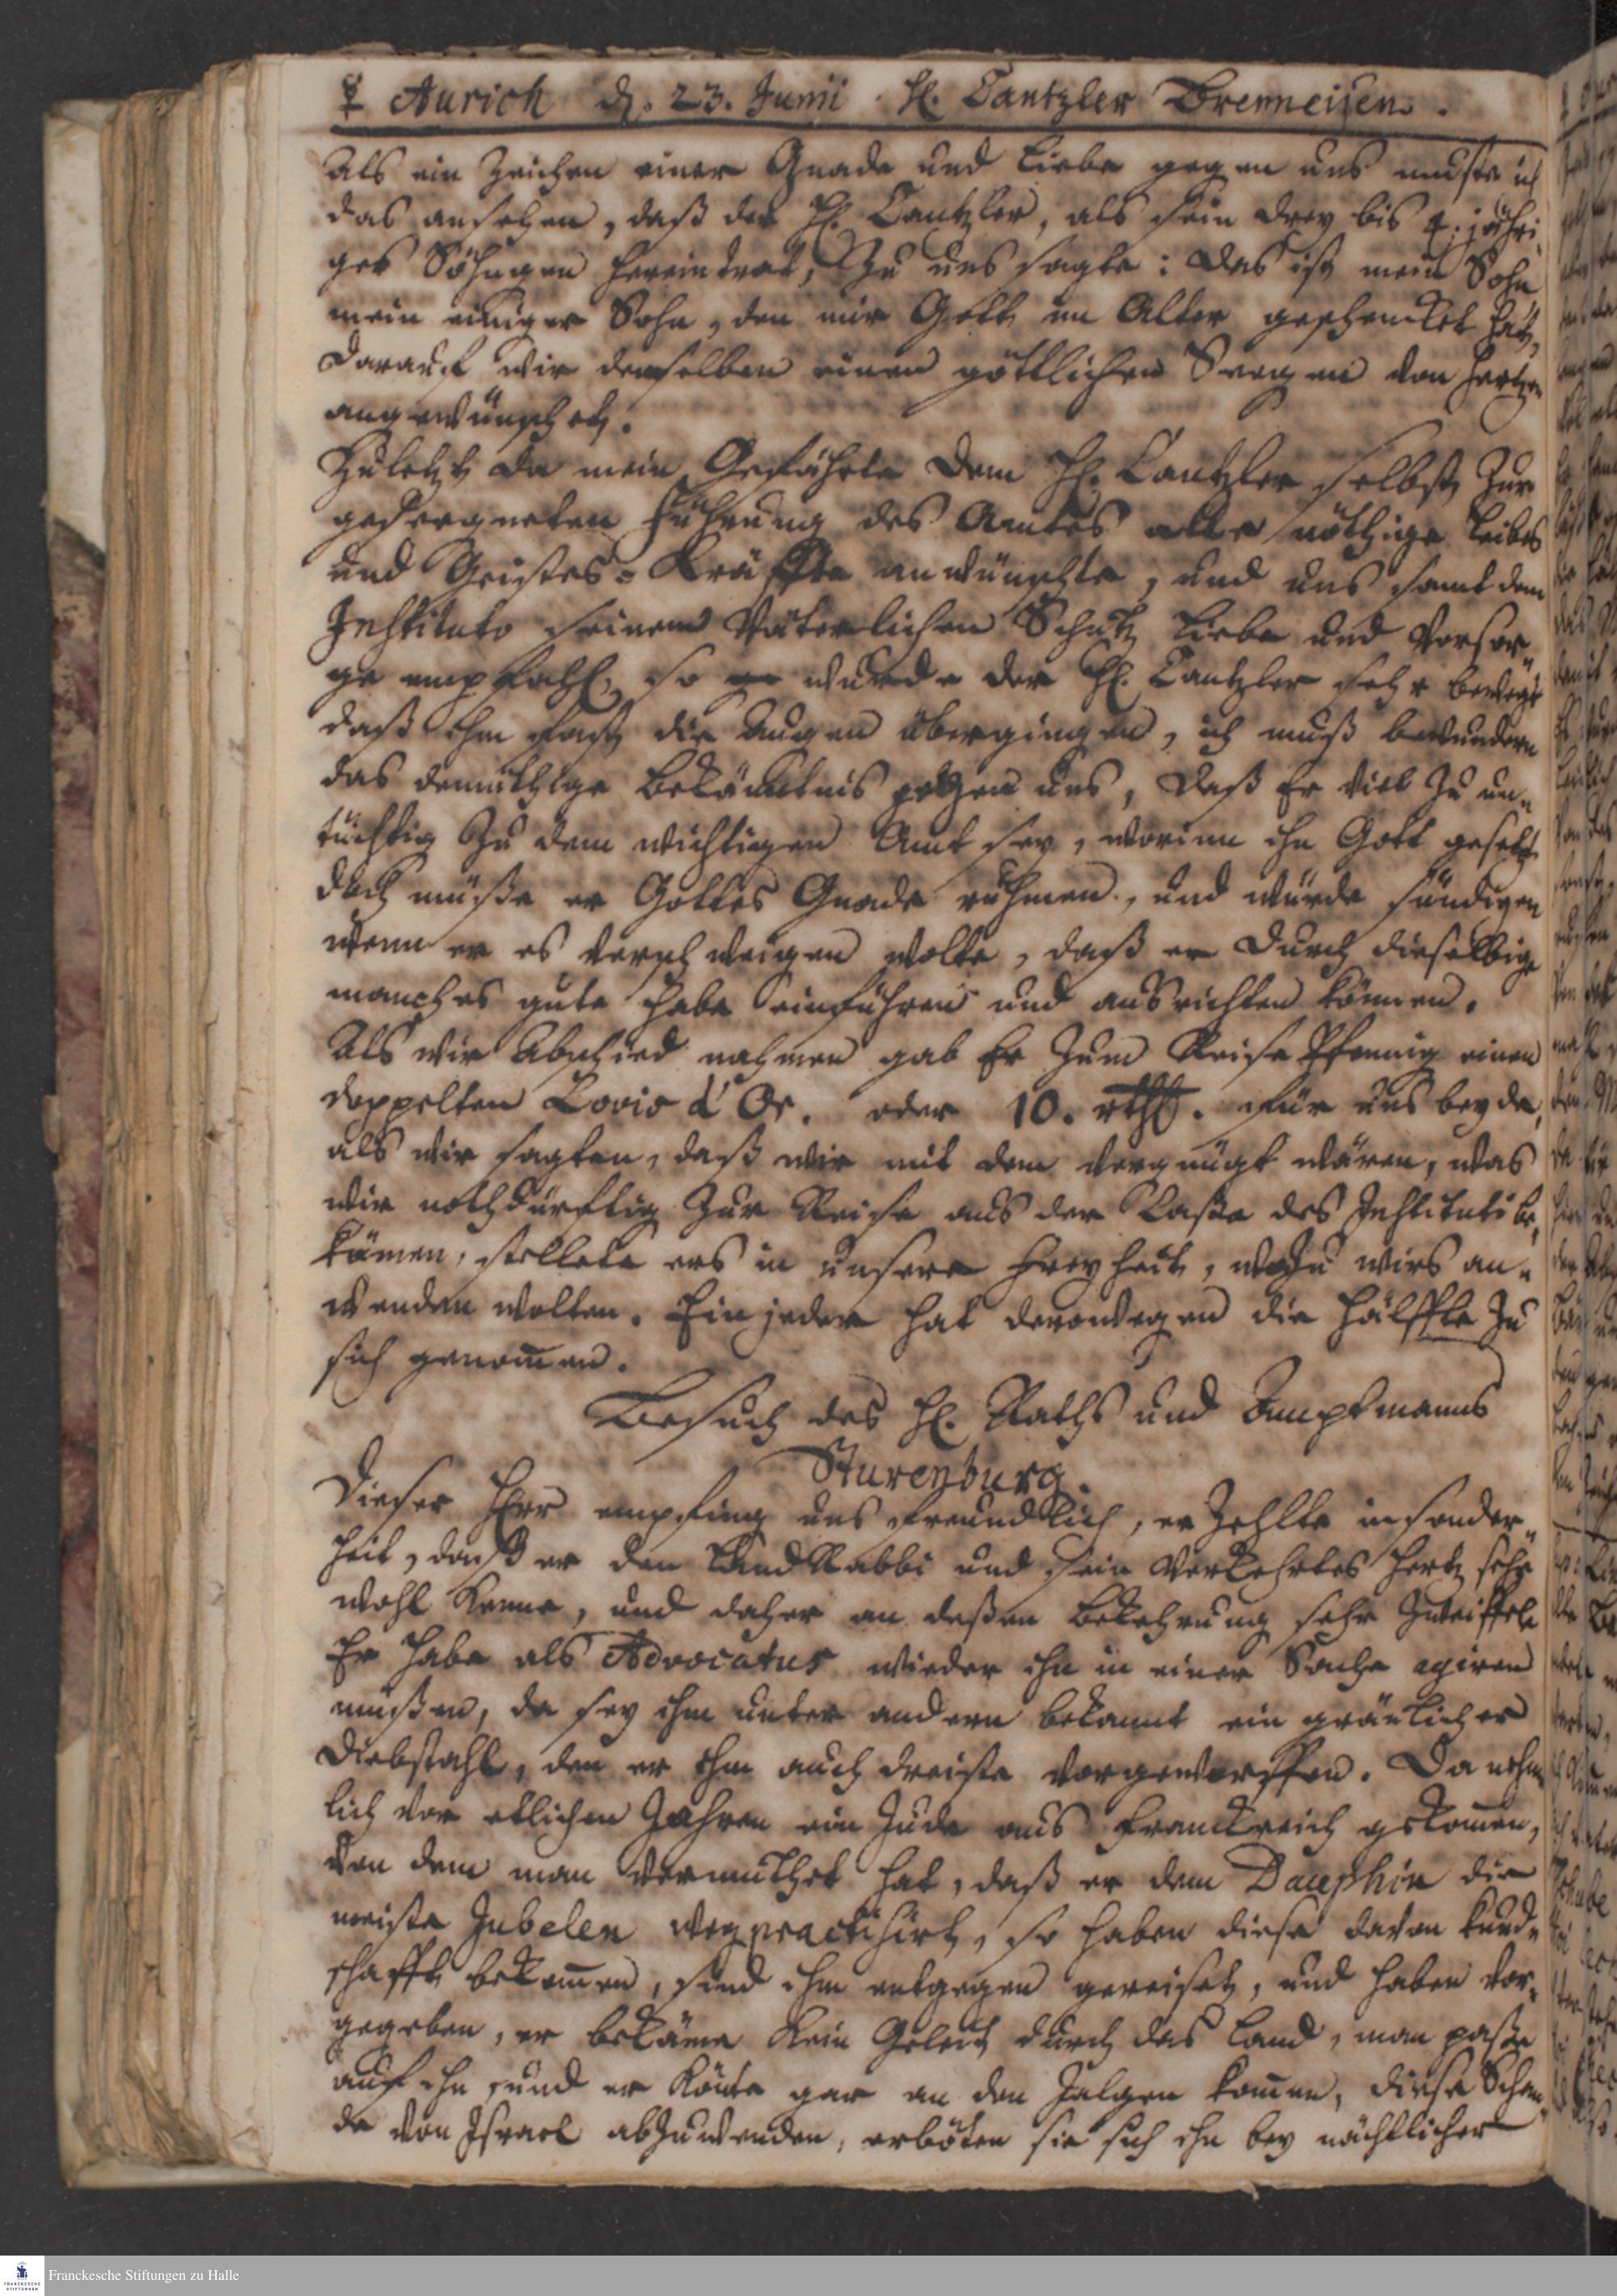 ☿ Aurich d. 23. Junii. H. Cantzler Brenneisen.
Als ein Zeichen einer Gnade und Liebe gegen uns muste ich
das ansehen, daß der H. Cantzler, als sein drey bis 4. jähri¬
ges Söhngen hereintrat, zu uns sagte: Das ist mein Sohn
mein einiger Sohn, den mir Gott im Alter geschencket hat,
darauf wir demselben einen göttlichen Seegen von Hertzen
angewünschet.
Zuletzt da mein Gefährte dem H. Cantzler selbst zur
geseegneten Führung des Amtes alle nöthige Leibes
und Geistes-Kräffte anwünschte, und uns samt dem
Instituto seinem Väterlichen Schutz Liebe und Vorsor¬
ge empfahl, so wurde der H. Cantzler sehr bewegt
daß ihm fast die Augen übergingen, ich muß bewundern
das demüthige Bekäntnis gegen uns, daß Er viel zu un¬
tüchtig zu dem wichtigen Amt sey, worinn ihn Gott gesetzt
doch müße er Gottes Gnade rühmen, und würde sündigen
wenn er es verschweigen wolte, daß er durch dieselbige
manches gute habe einführen und ausrichten können.
Als wir Abschied nahmen gab Er zum Reise Pfennig einen
doppelten Lovis d'Or. oder 10. rthl. für uns beyde,
als wir sagten, daß wir mit dem vergnügt wären, was
wir nothdürftig zur Reise aus der Caße des Instituti be¬
kämen, stellete ers in unsere Freyheit, wozu wirs an¬
wenden wolten. Ein jeder hat derowegen die Hälffte zu
sich genomen.
Besuch des H. Raths und Amptmanns
Sturenburg.
Dieser Herr empfing uns freundlich, erzehlte insonder¬
heit, daß er den Land Rabbi und sein verkehrtes Hertz sehr
wohl kenne, und daher an deßen Bekehrung sehr zweiffele
Er habe als Advocatus wieder ihn in einer Sache agiren
müßen, da sey ihm unter andern bekannt ein gräulicher
Diebstahl, den er ihm auch dreiste vorgeworffen. Da nehm¬
lich vor etlichen Jahren ein Jude aus Franckreich gekomen,
von dem man vermuthet hat, daß er dem Dauphin die
meiste Jubelen wegpracticirt, so haben diese davon kund¬
schafft bekomen, sind ihm entgegen gereiset, und haben vor¬
gegeben, er bekäme kein Geleit durch das Land, man paße
auf ihn, und er könte gar an den Galgen komen, diese Schan¬
de von Israel abzuwenden, erböten sie sich ihn bey nächtlicher
Franckesche Stiftungen zu Halle